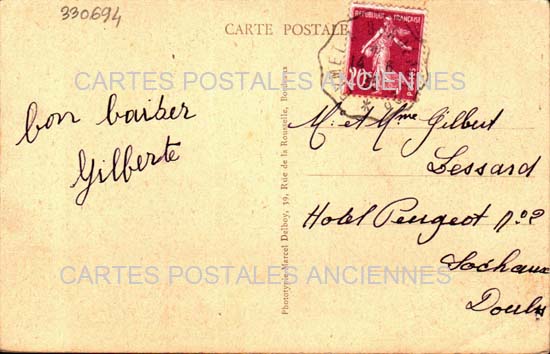 330694
CARTE POSTALE
REPUBLIQUE FRANÇAISE
20c
POSTES
CARTES POSTALES ANCIENNES
bon baiser
Gilberte
Phototypie Marcel Delboy, 39, Rue de la Rousselle, Bordeaux
Mr et Mme Gilbert
Lessard
Hotel Peugeot No 2
Sochaux
Doubs
CARTES POSTALES ANCIENNES